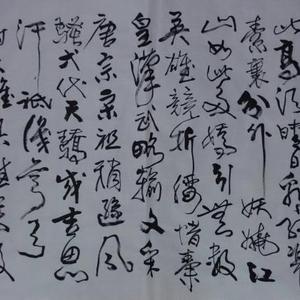 比高須晴日看紅裝
素裹分外妖嬈江
山如此多嬌引無數
英雄競折腰惜秦
皇漢武略輸文采
唐宗宋祖稍遜風
騷一代天驕成吉思
汗祇識彎弓
射大雕俱往矣